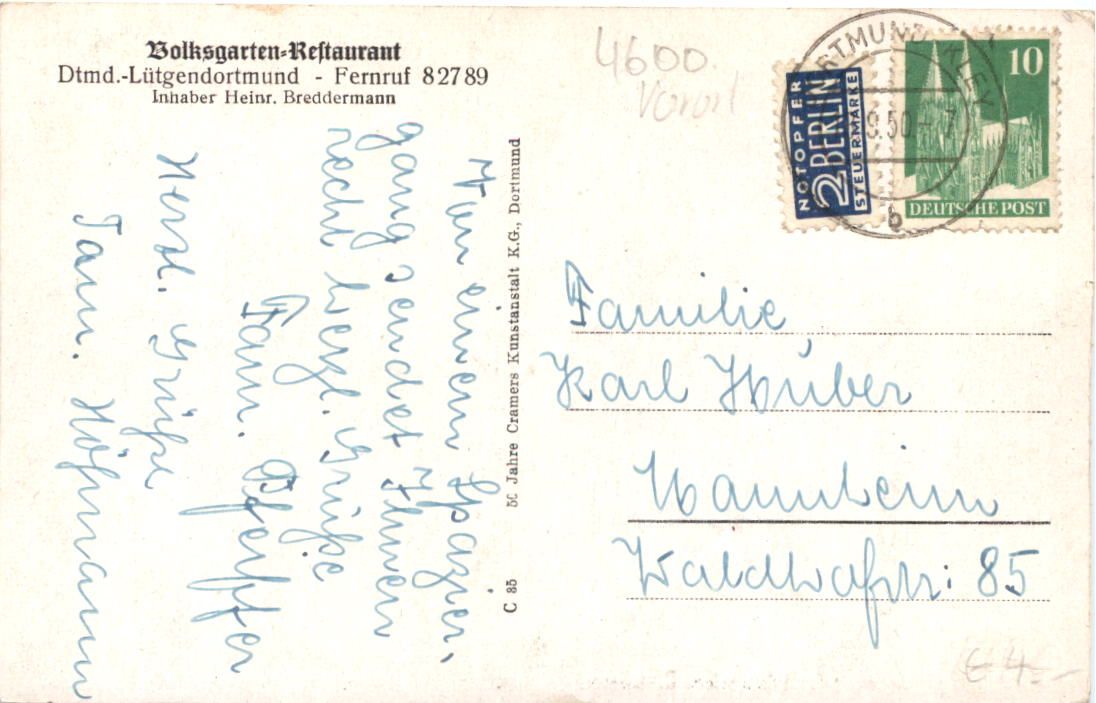 Volksgarten-Restaurant
Dtmd.-Lütgendortmund - Fernruf 82789
Inhaber Heinr. Breddermann
4600.
Vorort
NOTOPFER
2 BERLIN
STEUERMARKE
10
DEUTSCHE POST
DORTMUND-KLEY
9.50-7
b
Von einem Spazier,
gang sendet Ihnen
recht herzl. Grüße
Fam. Pfeiffer
Herzl. Grüße
Fam. Höhmann
C 85 50 Jahre Cramers Kunstanstalt K.G., Dortmund
Familie
Karl Huber
Mannheim
85
€ 4.-